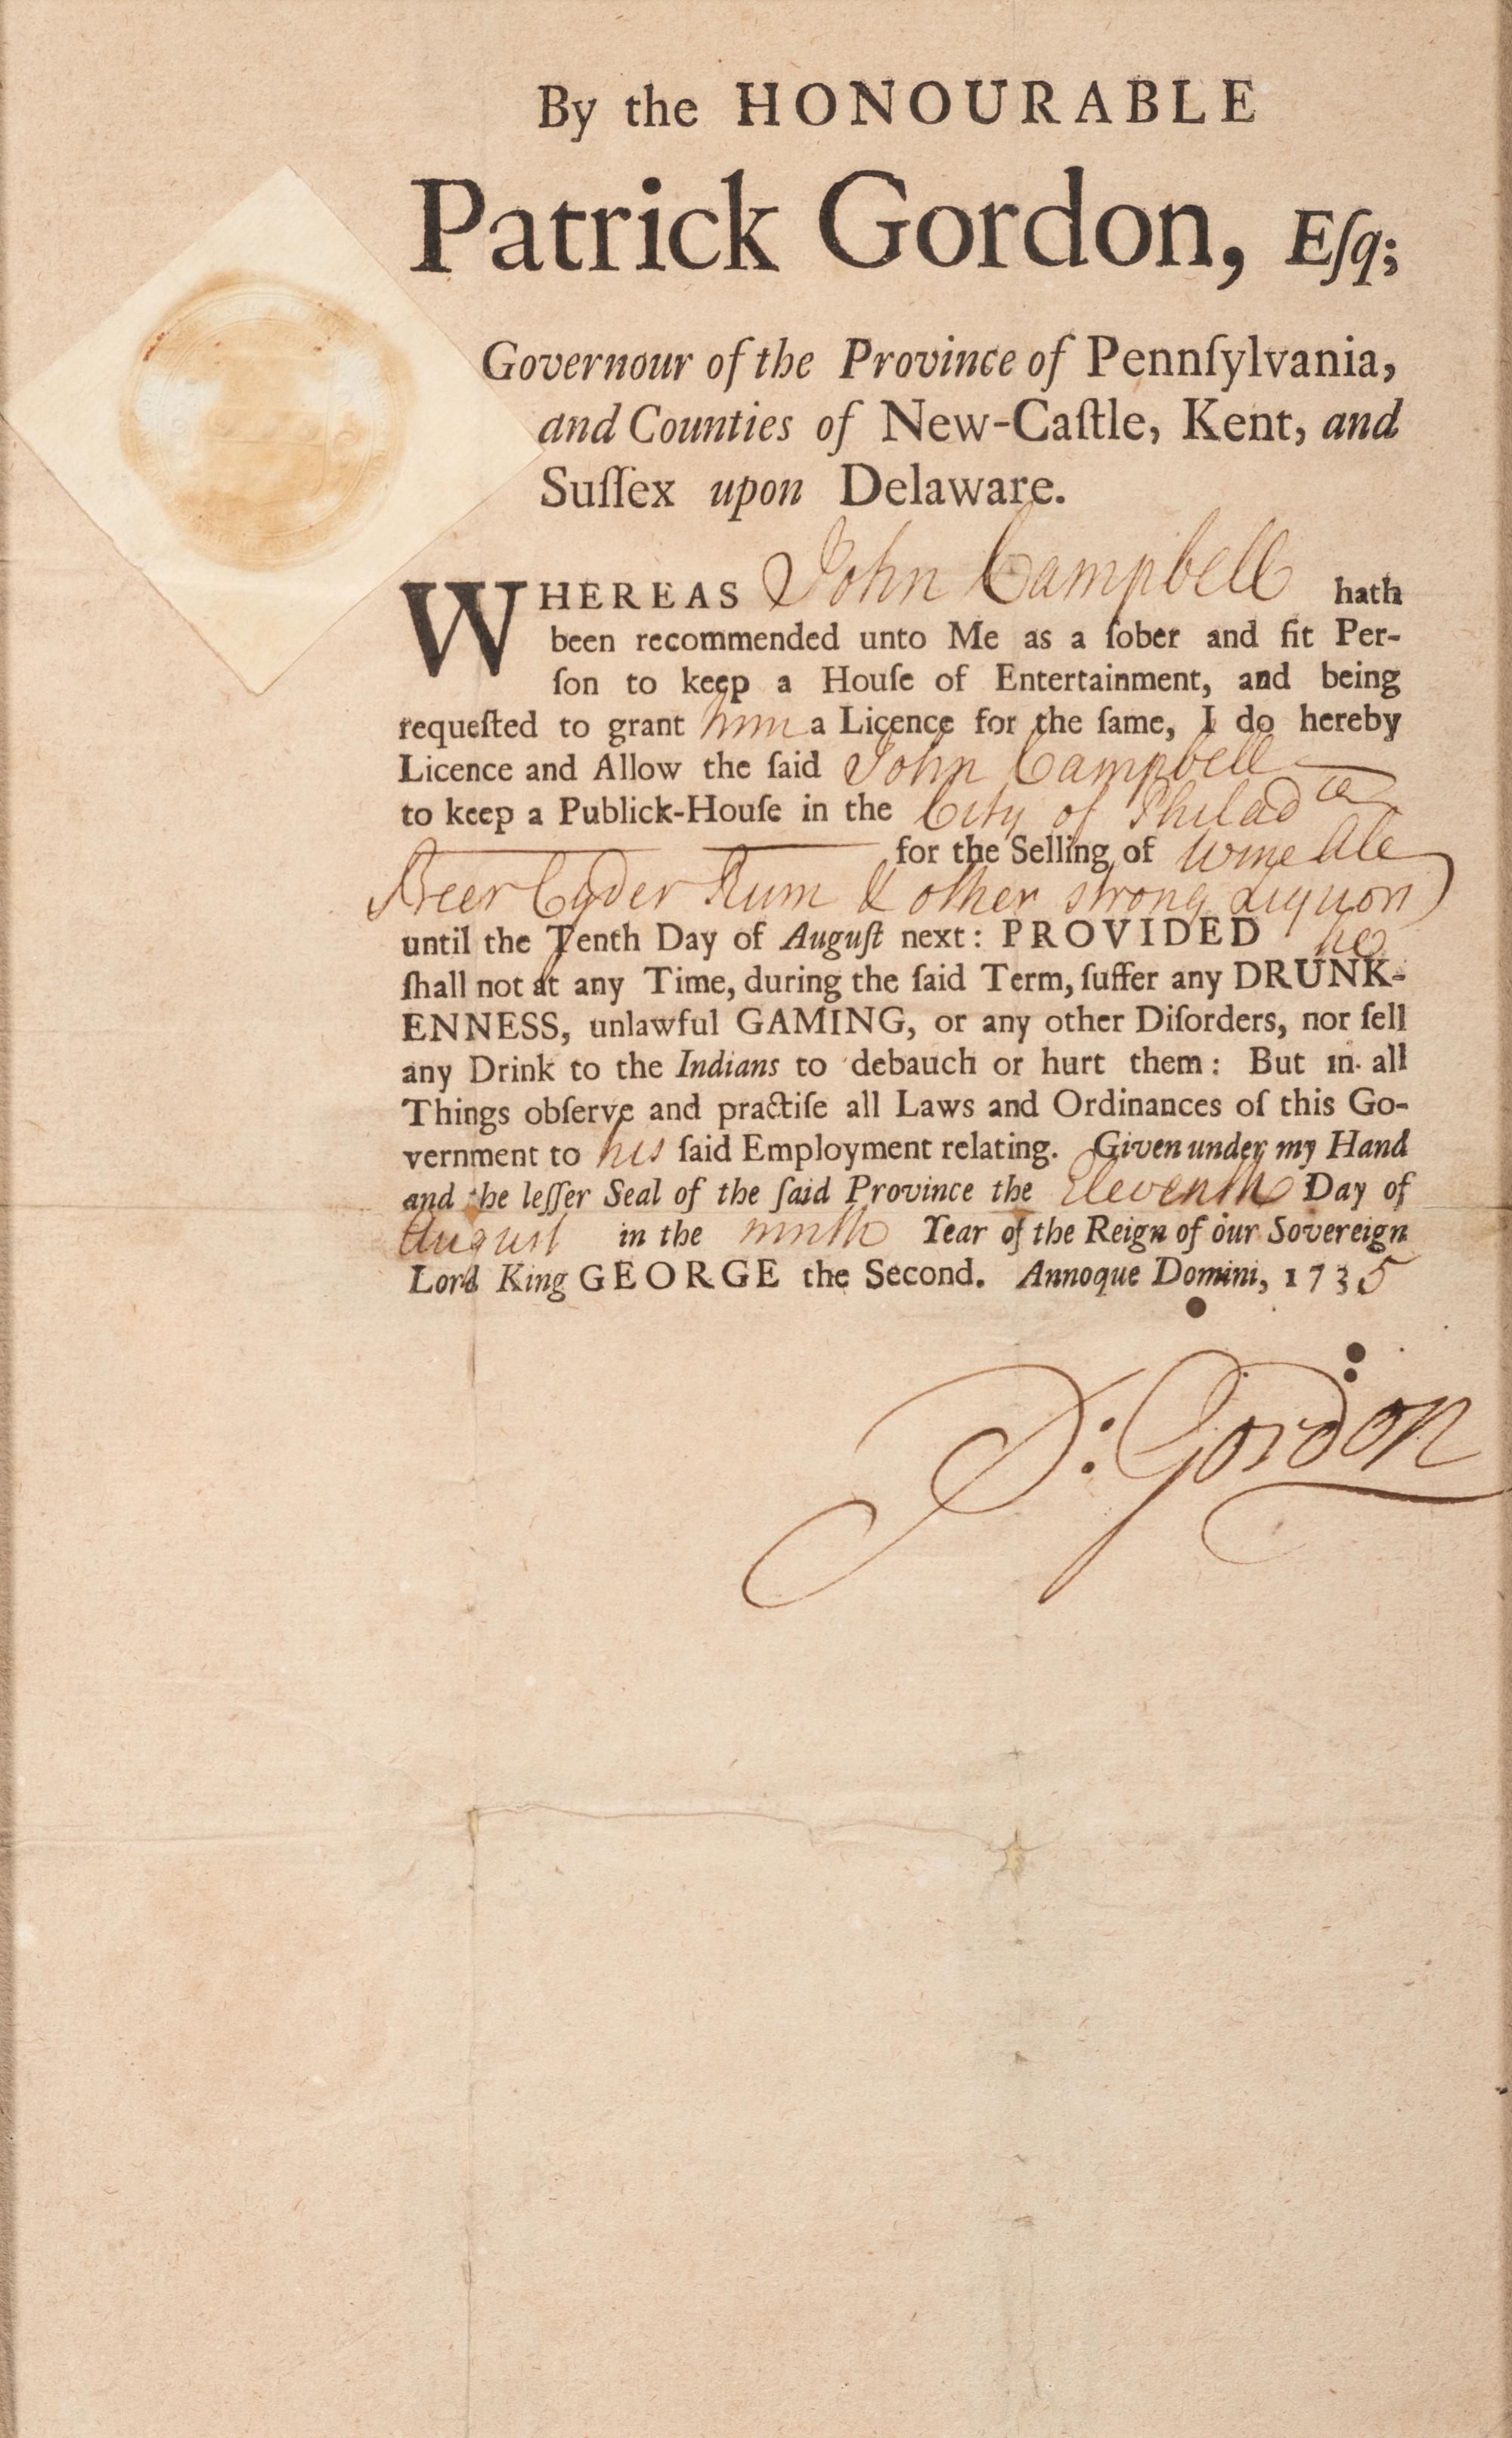 By the HONOURABLE
Patrick Gordon, Eſq;
Governour of the Province of Pennſylvania,
and Counties of New-Caſtle, Kent, and
Suſſex upon Delaware.
WHEREAS John Campbell hath
been recommended unto Me as a ſober and fit Per-
ſon to keep a Houſe of Entertainment, and being
requeſted to grant him a Licence for the ſame, I do hereby
Licence and Allow the ſaid John Campbell
to keep a Publick-Houſe in the City of Philadia
for the Selling of Wine Ale
Beer Cyder Rum & other strong Liquors
until the Tenth Day of Auguſt next: PROVIDED he
ſhall not at any Time, during the ſaid Term, ſuffer any DRUNK-
ENNESS, unlawful GAMING, or any other Diſorders, nor ſell
any Drink to the Indians to debauch or hurt them: But in all
Things obſerve and practiſe all Laws and Ordinances of this Go-
vernment to his ſaid Employment relating. Given under my Hand
and the leſſer Seal of the ſaid Province the Eleventh Day of
August in the ninth Year of the Reign of our Sovereign
Lord King GEORGE the Second. Annoque Domini, 1735
P: Gordon